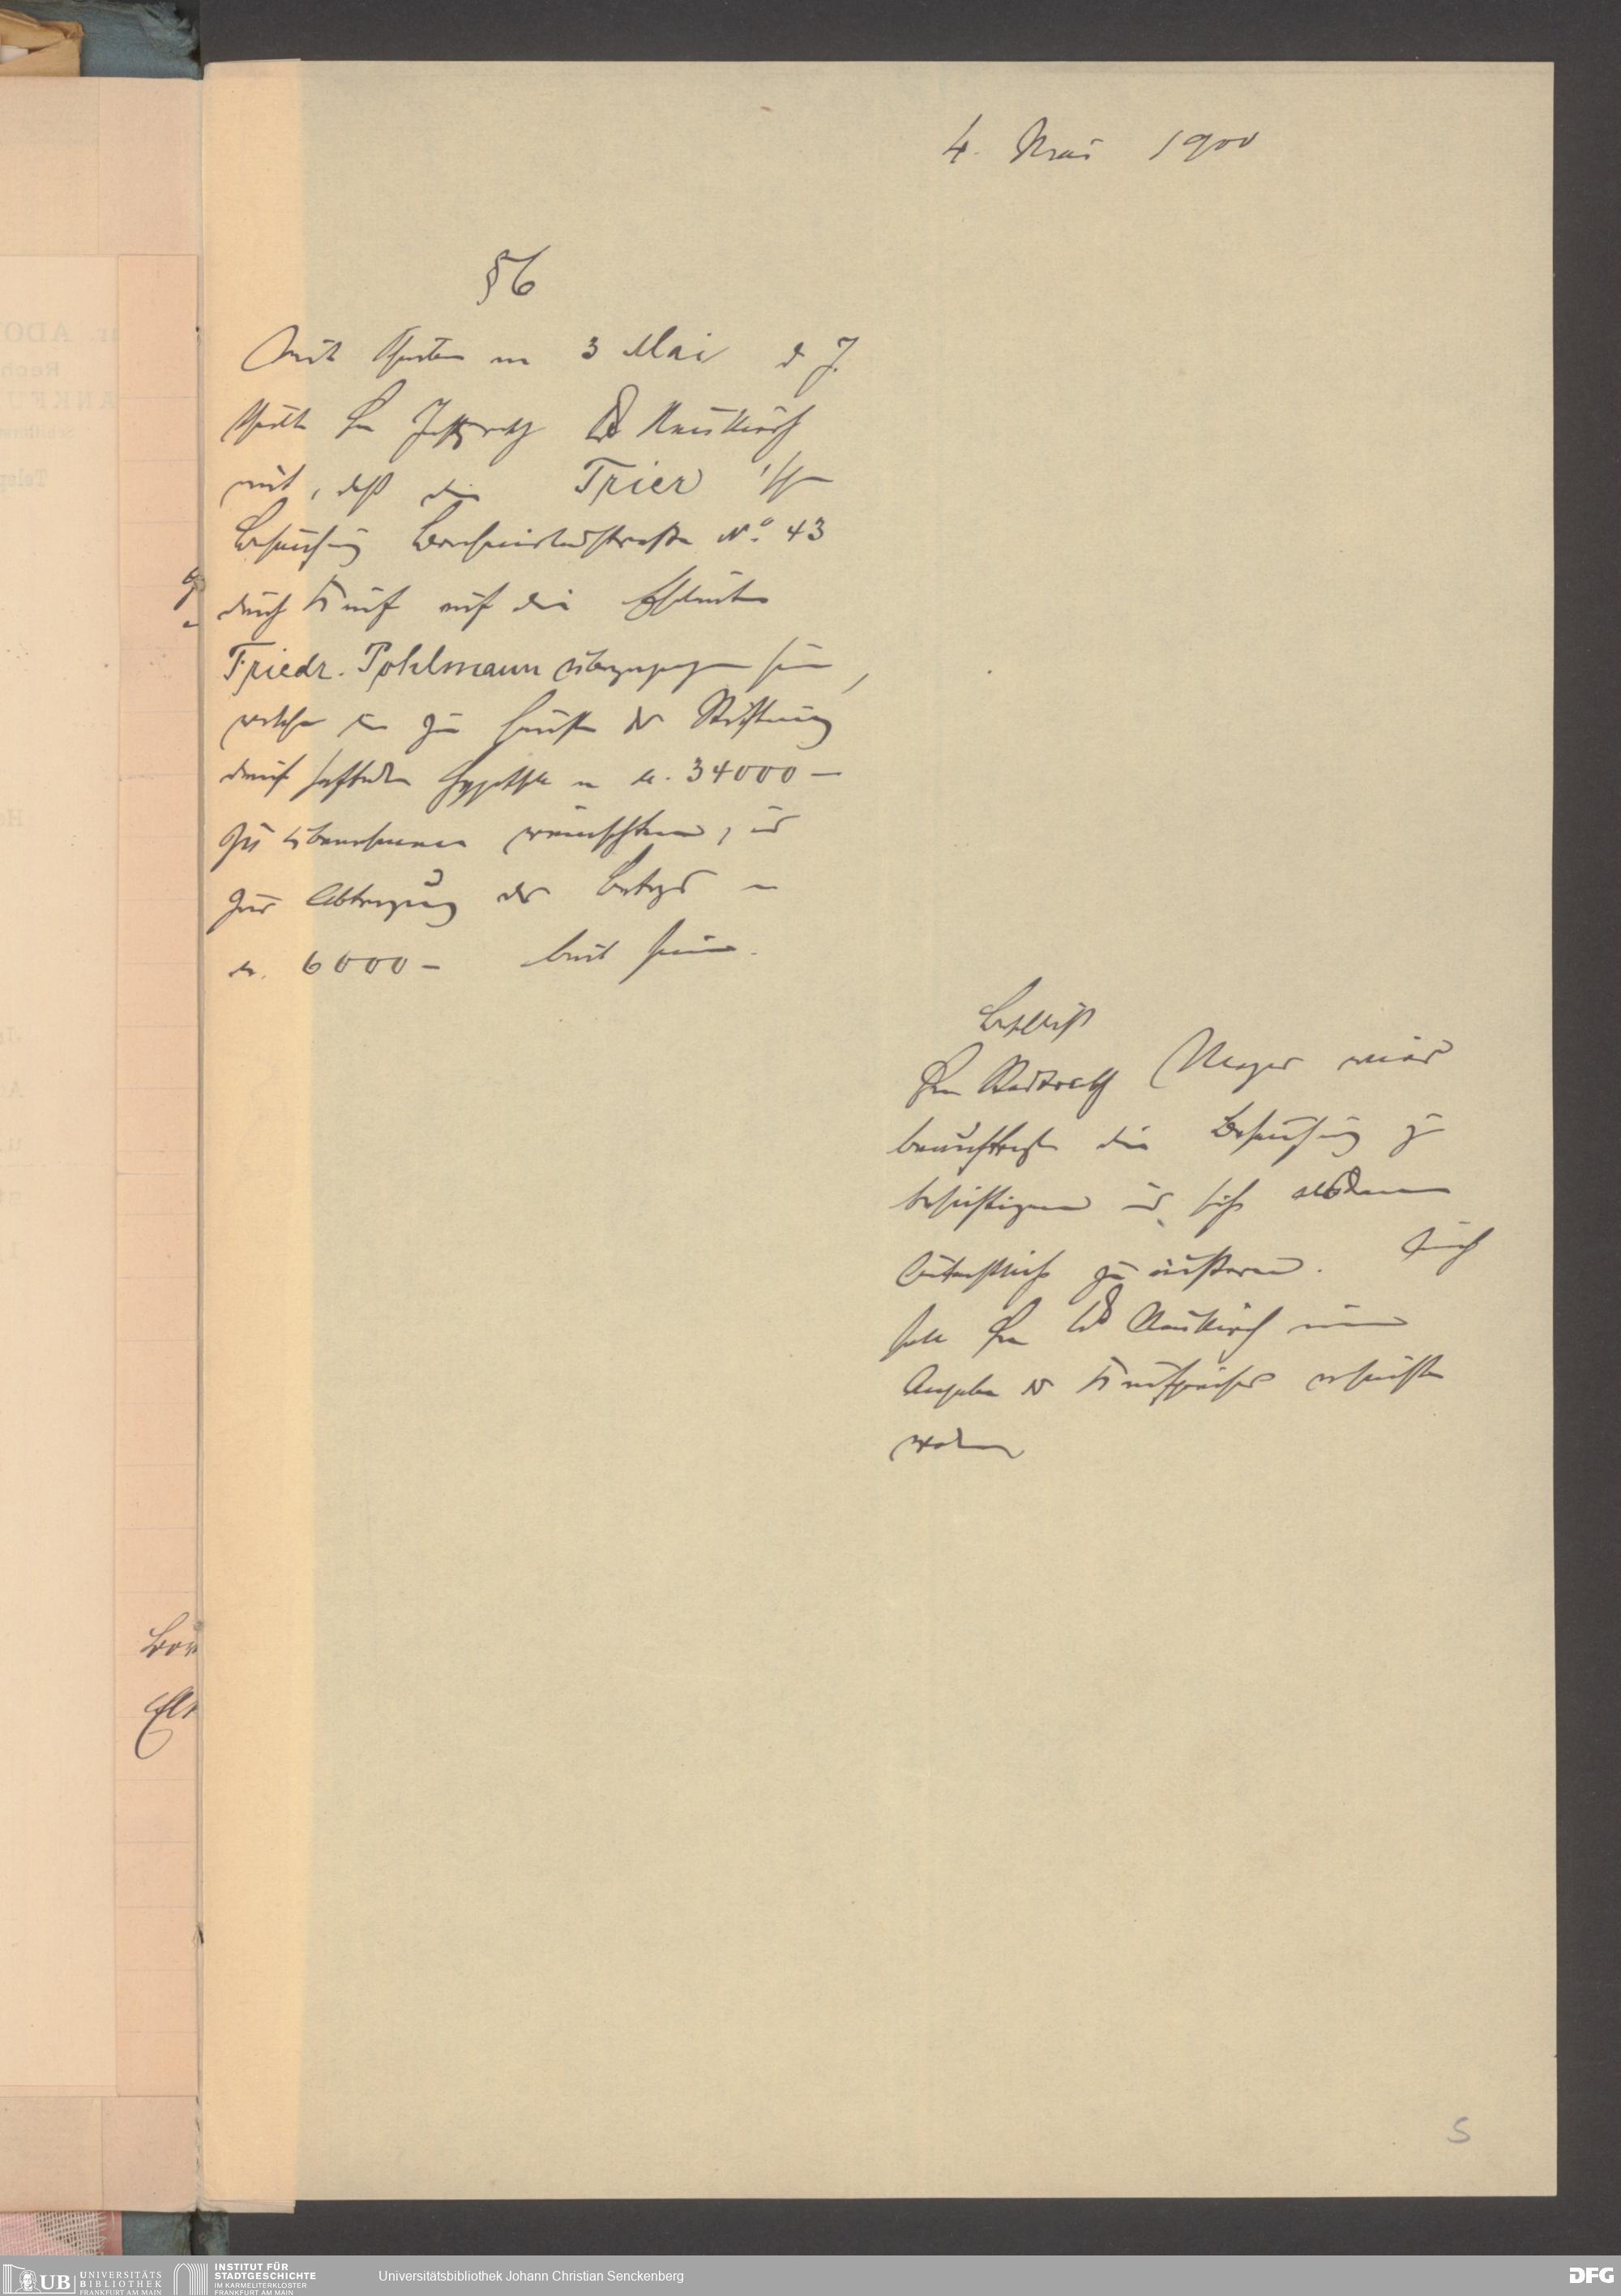 4. Mai 1900
§ 6
Mit Schreiben vom 3 Mai d J.
theilt Herr Justizrath Dr Neukirch
mit, daß die Trier'sche
Behausung Bornheimerlandstraße No. 43
durch Kauf auf die Eheleute
Friedr. Pohlmann übergegangen sei,
welche die zu Gunsten der Stiftung
darauf haftende Hypothek von M. 34000 —
zu übernehmen wünschten, und
zur Abtragung des Betrags von
M. 6000 — bereit seien.
Beschluß
Herr Stadtrath Mayer wird
beauftragt die Behausung zu
besichtigen und sich alsdann
gutachtlich zu äußern. Auch
soll Herr Dr Neukirch um
Angabe des Kaufpreises ersucht
werden
Bor
5
UB UNIVERSITÄTS BIBLIOTHEK FRANKFURT AM MAIN
INSTITUT FÜR STADTGESCHICHTE IM KARMELITERKLOSTER FRANKFURT AM MAIN
Universitätsbibliothek Johann Christian Senckenberg
DFG